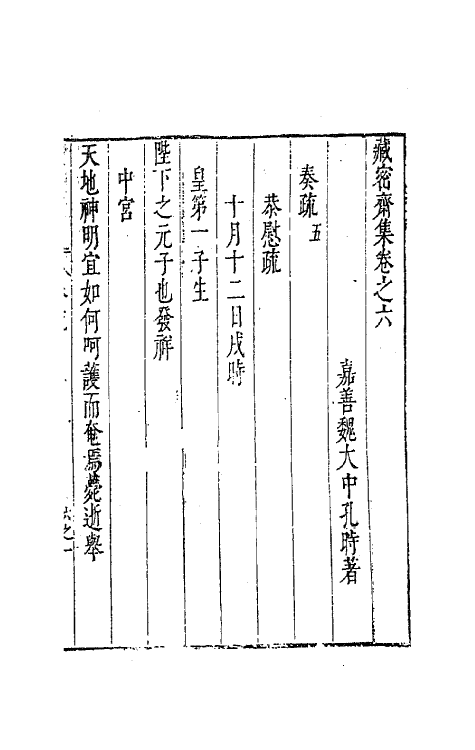 藏密齋集卷之六
嘉善魏大中孔時著
奏疏五
恭慰疏
十月十二日戌時
皇第一子生
陛下之元子也發祥
中宮
天地神明宜如何呵護而奄焉薨逝舉